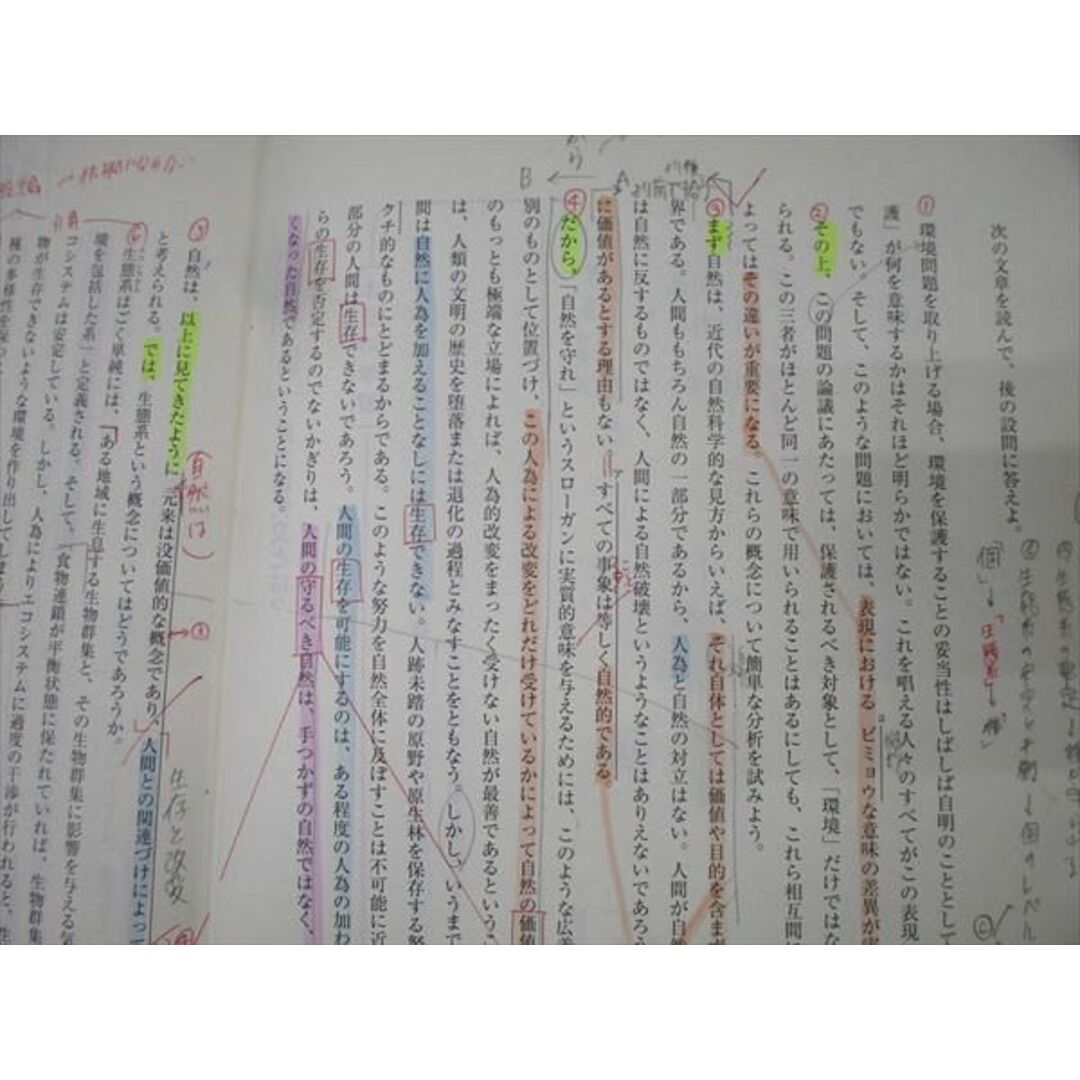 次の文章を読んで、後の設問に答えよ。
① 環境問題を取り上げる場合、環境を保護することの妥当性はしばしば自明のこととし
護」が何を意味するかはそれほど明らかではない。これを唱える人々のすべてがこの表現
でもない。そして、このような問題においては、表現におけるビミョウな意味の差異が
② その上、この問題の論議にあたっては、保護されるべき対象として、「環境」だけではな
られる。この三者がほとんど同一の意味で用いられることはあるにしても、これら相互間に
よってはその違いが重要になる。これらの概念について簡単な分析を試みよう。
③ まず自然は、近代の自然科学的な見方からいえば、それ自体としては価値や目的を含ま
界である。人間ももちろん自然の一部分であるから、人為と自然の対立はない。人間が自然
は自然に反するものではなく、人間による自然破壊というようなことはありえないであろう
に価値があるとする理由もない。すべての事象は等しく自然的である。
④ だから、「自然を守れ」というスローガンに実質的意味を与えるためには、このような広義
別のものとして位置づけ、この人為による改変をどれだけ受けているかによって自然の価値
のもっとも極端な立場によれば、人為的改変をまったく受けない自然が最善であるというこ
は、人類の文明の歴史を堕落または退化の過程とみなすことをともなう。しかし、いうまで
間は自然に人為を加えることなしには生存できない。人跡未踏の原野や原生林を保存する努
クチ的なものにとどまるからである。このような努力を自然全体に及ぼすことは不可能に近
部分の人間は生存できないであろう。人間の生存を可能にするのは、ある程度の人為の加わ
らの生存を否定するのでないかぎりは、人間の守るべき自然は、手つかずの自然ではなく、
てなった自然であるということになる。
⑤ 自然は、以上に見てきたように元来は没価値的な概念であり、人間との関連づけによって
と考えられる。では、生態系という概念についてはどうであろうか。
⑥ 生態系はごく単純には、「ある地域に生息する生物群集と、その生物群集に影響を与える気
境を包括した系」と定義される。そして、食物連鎖が平衡状態に保たれていれば、生物群集
コシステムは安定している。しかし、人為によりエコシステムに過度の干渉が行われると、生
物が生存できないような環境を作り出してしまう
種の多様性を保つ
A
B
から
(自然は)
生存と改変